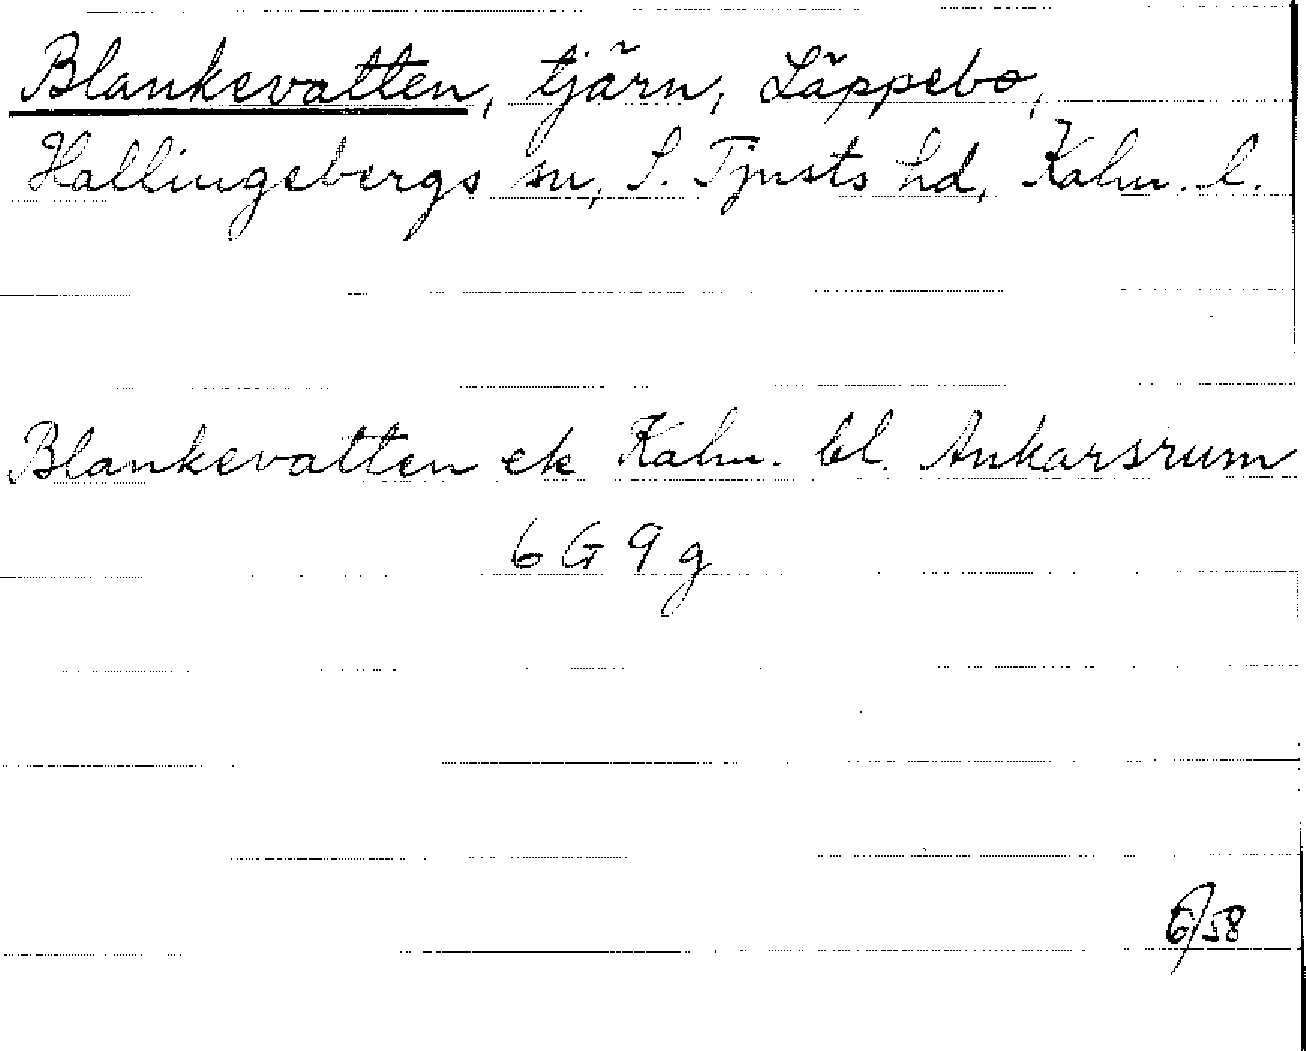 Blankevatten, tjärn, Läppebo,
Hallingebergs sn, S. Tjusts hd, Kalm. l.
Blankevatten ek Kalm. bl. Ankarsrum
6 G 9 g
6/58